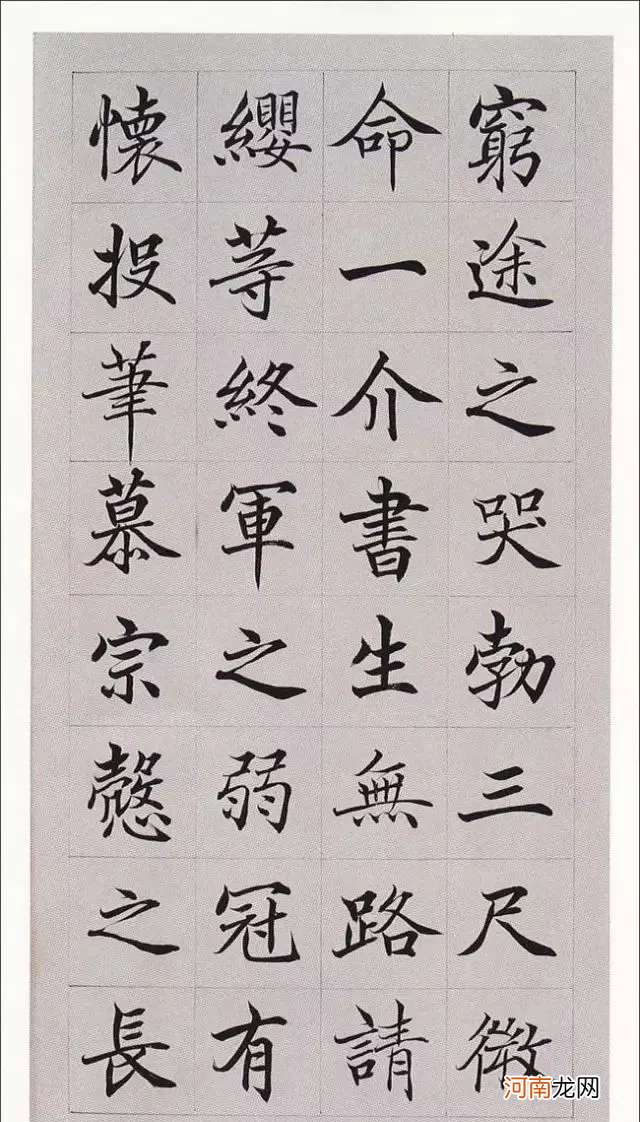 窮途之哭勃三尺微
命一介書生無路請
纓等終軍之弱冠有
懷投筆慕宗慤之長
河南龙网